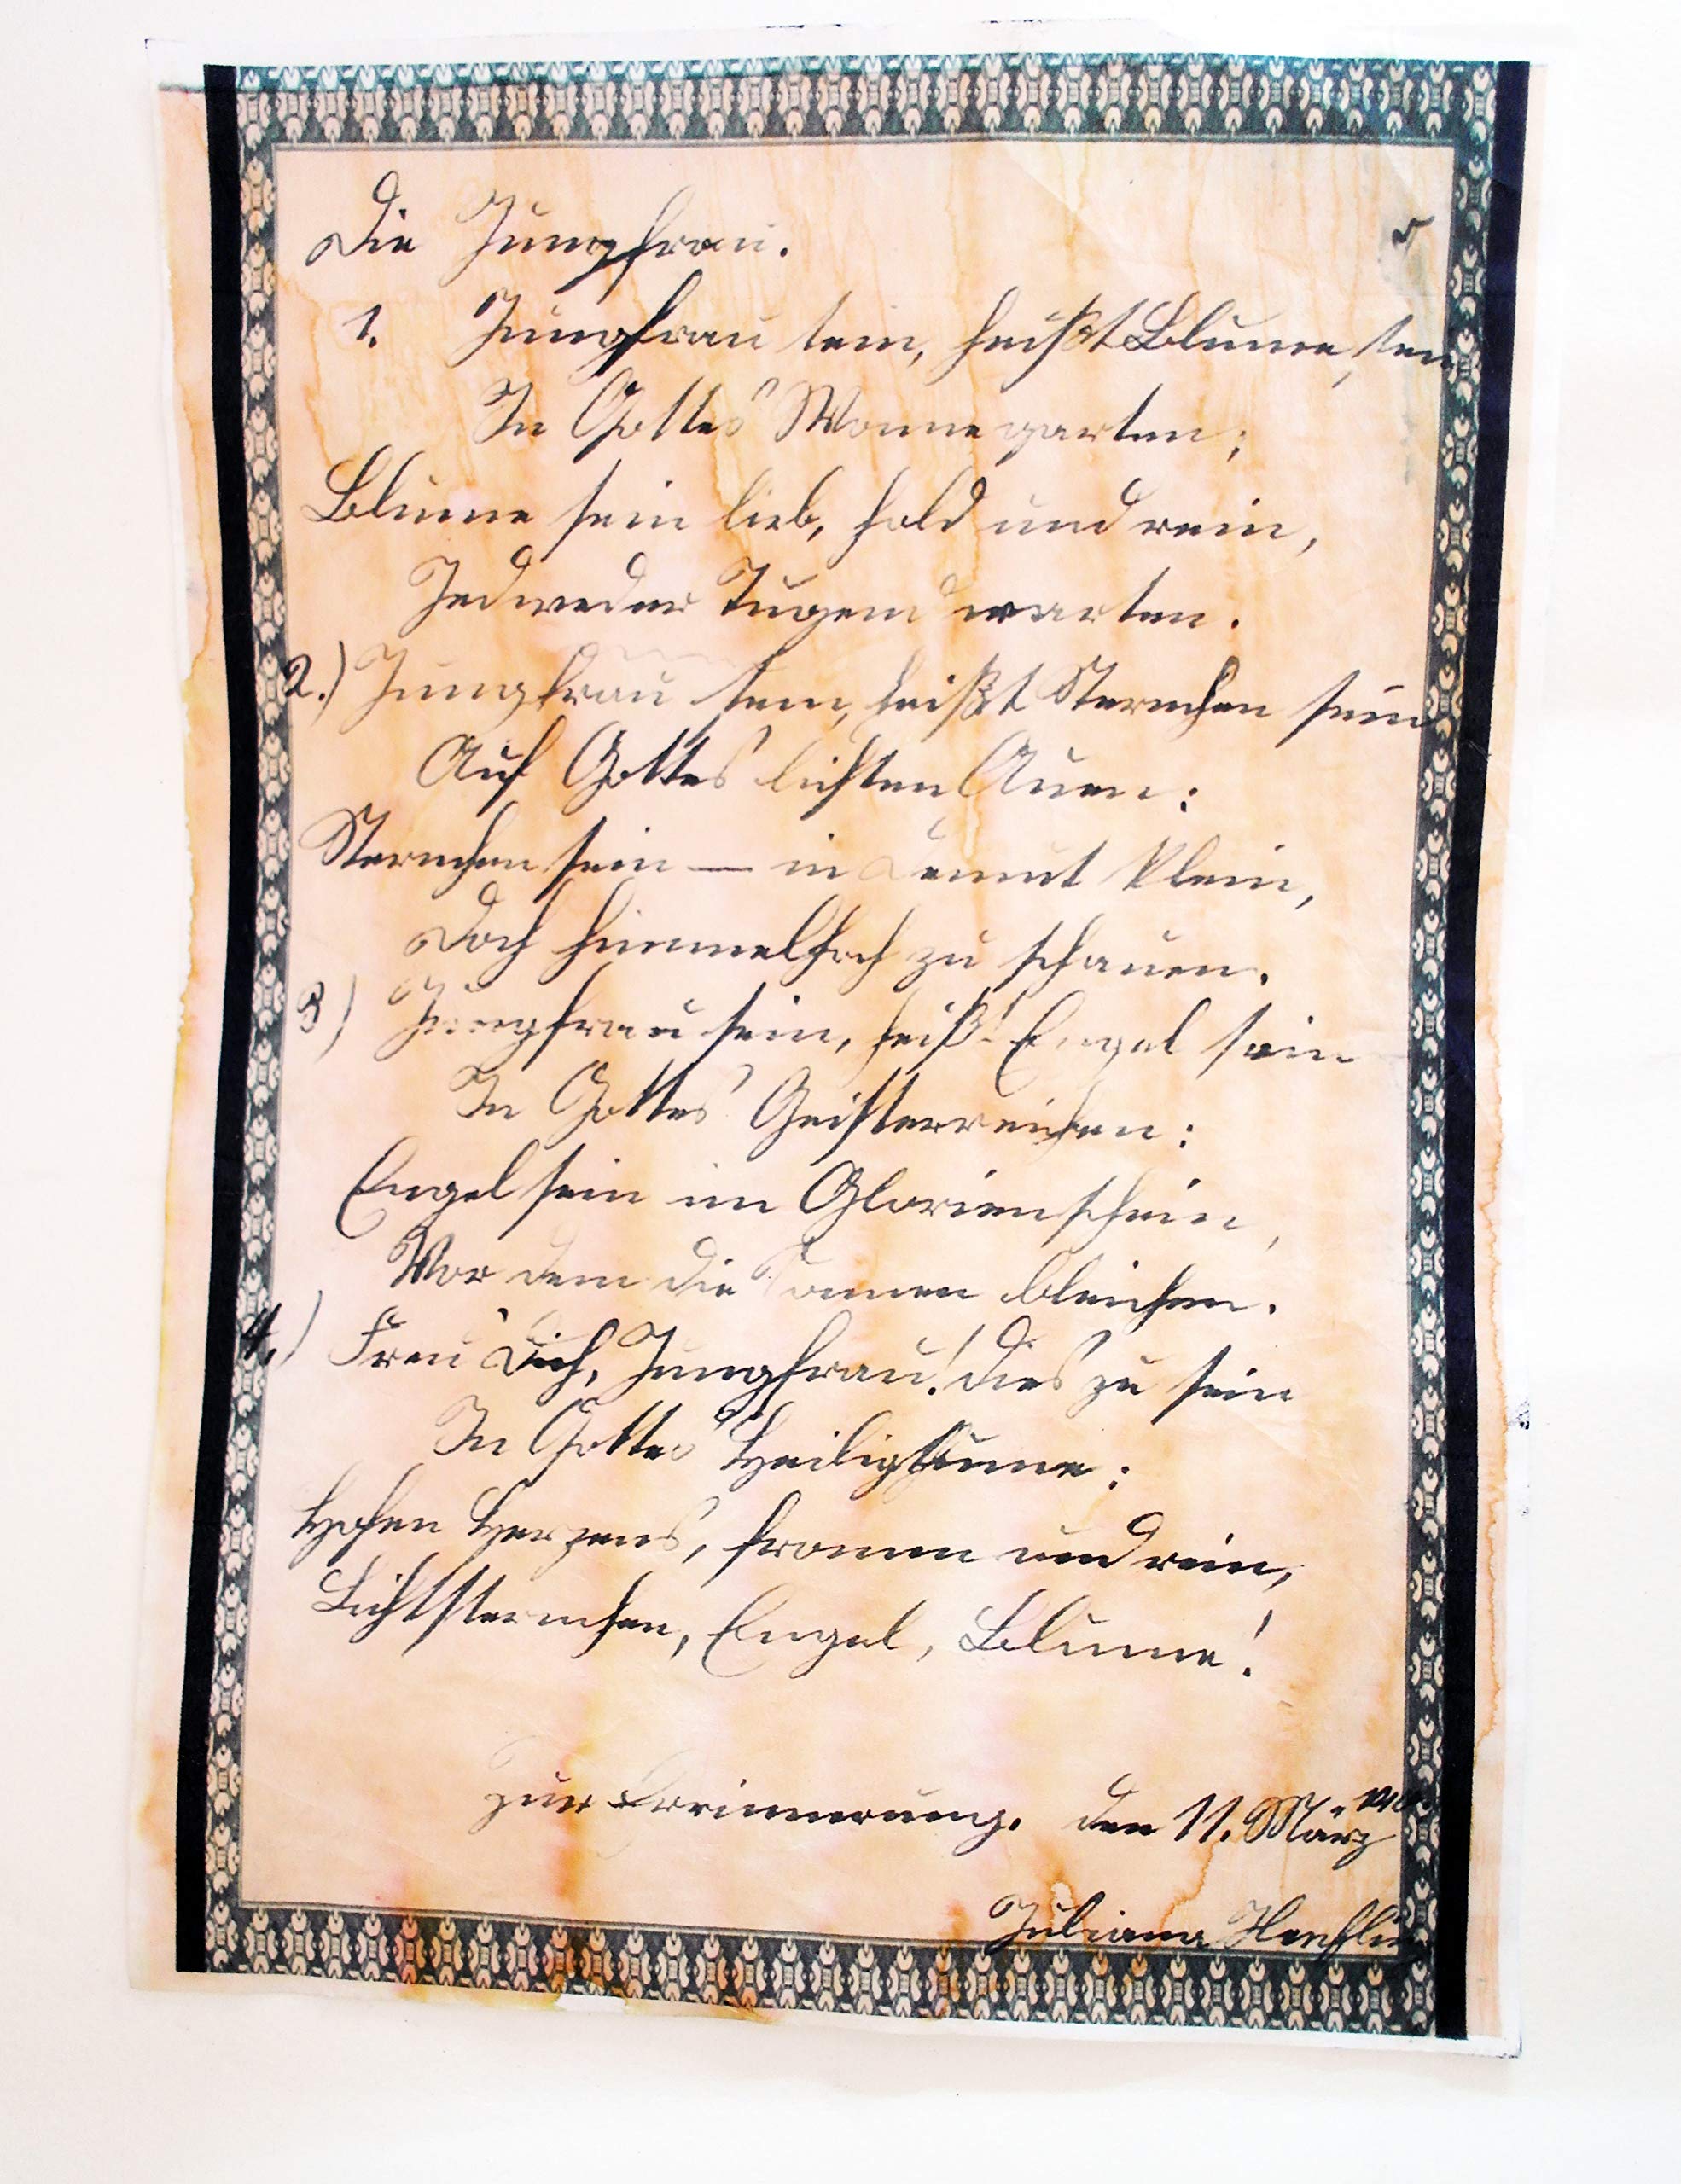 Die Jungfrau.
1. Jungfrau sein, heißt Blume sein
In Gottes Wonnegarten;
Blume sein lieb, hold und rein,
Jedweder Tugend warten.
2.) Jungfrau sein, heißt Sternchen sein
Auf Gottes lichten Auen:
Sternchen sein — in Demut klein,
Doch himmelhoch zu schauen.
3) Jungfrau sein, heißt Engel sein
In Gottes Geisterreichen:
Engel sein im Glorienschein,
Vor dem die Sonnen bleichen.
4.) Freu' Dich, Jungfrau! dies zu sein
In Gottes Heiligtume:
Hohen Herzens, fromm und rein,
Lichtsternchen, Engel, Blume!
Zur Errinnerung. den 11. März
Juliana